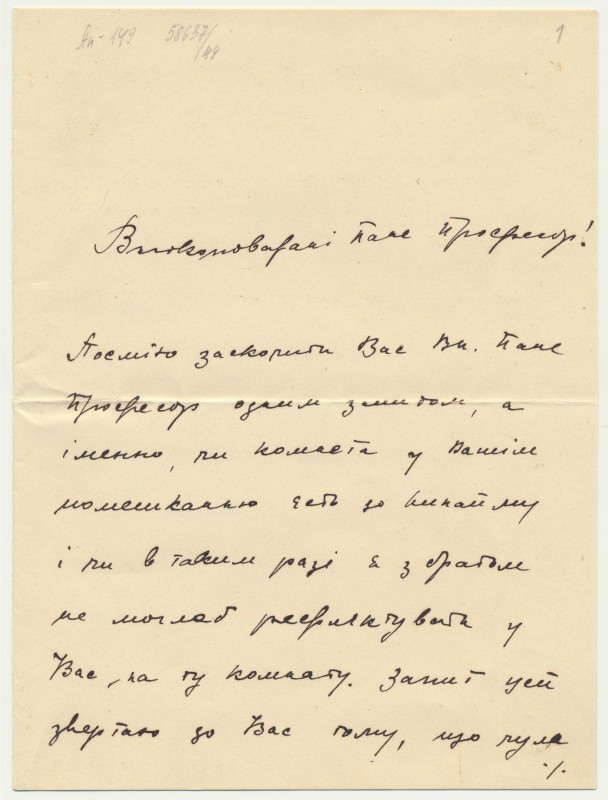 Ап-149 58637/49 1
Високоповажані Пане Професор!
Посмію заскочити Вас Вп. Пане
Професор одним запитом, а
іменно, чи комната у Вашім
помешканню єсть до винайму
і чи в таким разі я з братом
не моглаб рефлєктувати у
Вас, на ту комнату. Запит цей
звертаю до Вас тому, що чула
./.